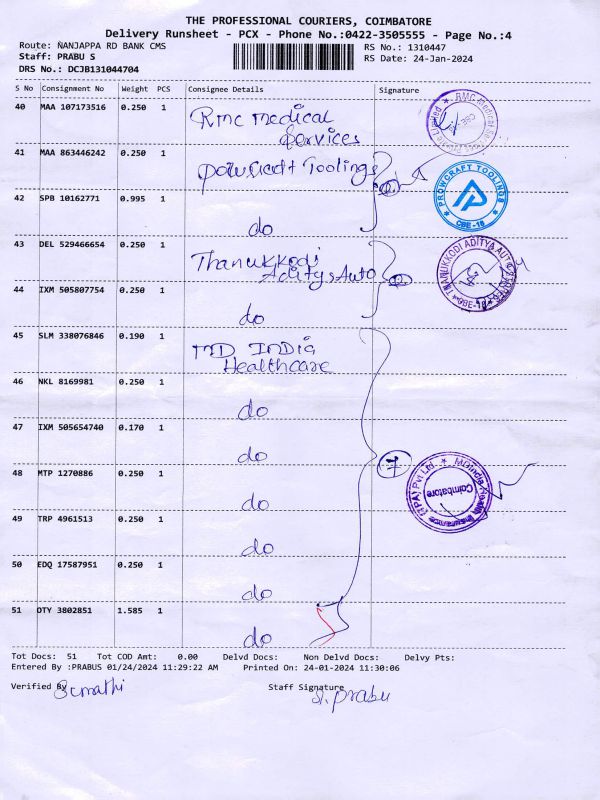 THE PROFESSIONAL COURIERS, COIMBATORE
Delivery Runsheet - PCX - Phone No.:0422-3505555 - Page No.:4
Route: ÑANJAPPA RD BANK CMS RS No.: 1310447
Staff: PRABU S RS Date: 24-Jan-2024
DRS No.: DCJB131044704
S No Consignment No Weight PCS Consignee Details Signature
40 MAA 107173516 0.250 1 Rmc Medical
Services
41 MAA 863446242 0.250 1 Toolings
PROWCRAFT TOOLINGS
CBE-18
42 SPB 10162771 0.995 1
do
43 DEL 529466654 0.250 1 Thanukkodi
Aditys Auto
THANUKKODI ADITYA AUTO
CBE-18
44 IXM 505807754 0.250 1
do
45 SLM 338076846 0.190 1 MD INDIA
Healthcare
46 NKL 8169981 0.250 1
do
47 IXM 505654740 0.170 1
do
7
48 MTP 1270886 0.250 1
do
MDIndia Health Insurance (TPA) Pvt Ltd.
Coimbatore
49 TRP 4961513 0.250 1
do
50 EDQ 17587951 0.250 1
do
51 OTY 3802851 1.585 1
do
Tot Docs: 51 Tot COD Amt: 0.00 Delvd Docs: Non Delvd Docs: Delvy Pts:
Entered By :PRABUS 01/24/2024 11:29:22 AM Printed On: 24-01-2024 11:30:06
Verified By Staff Signature
S. Prabu